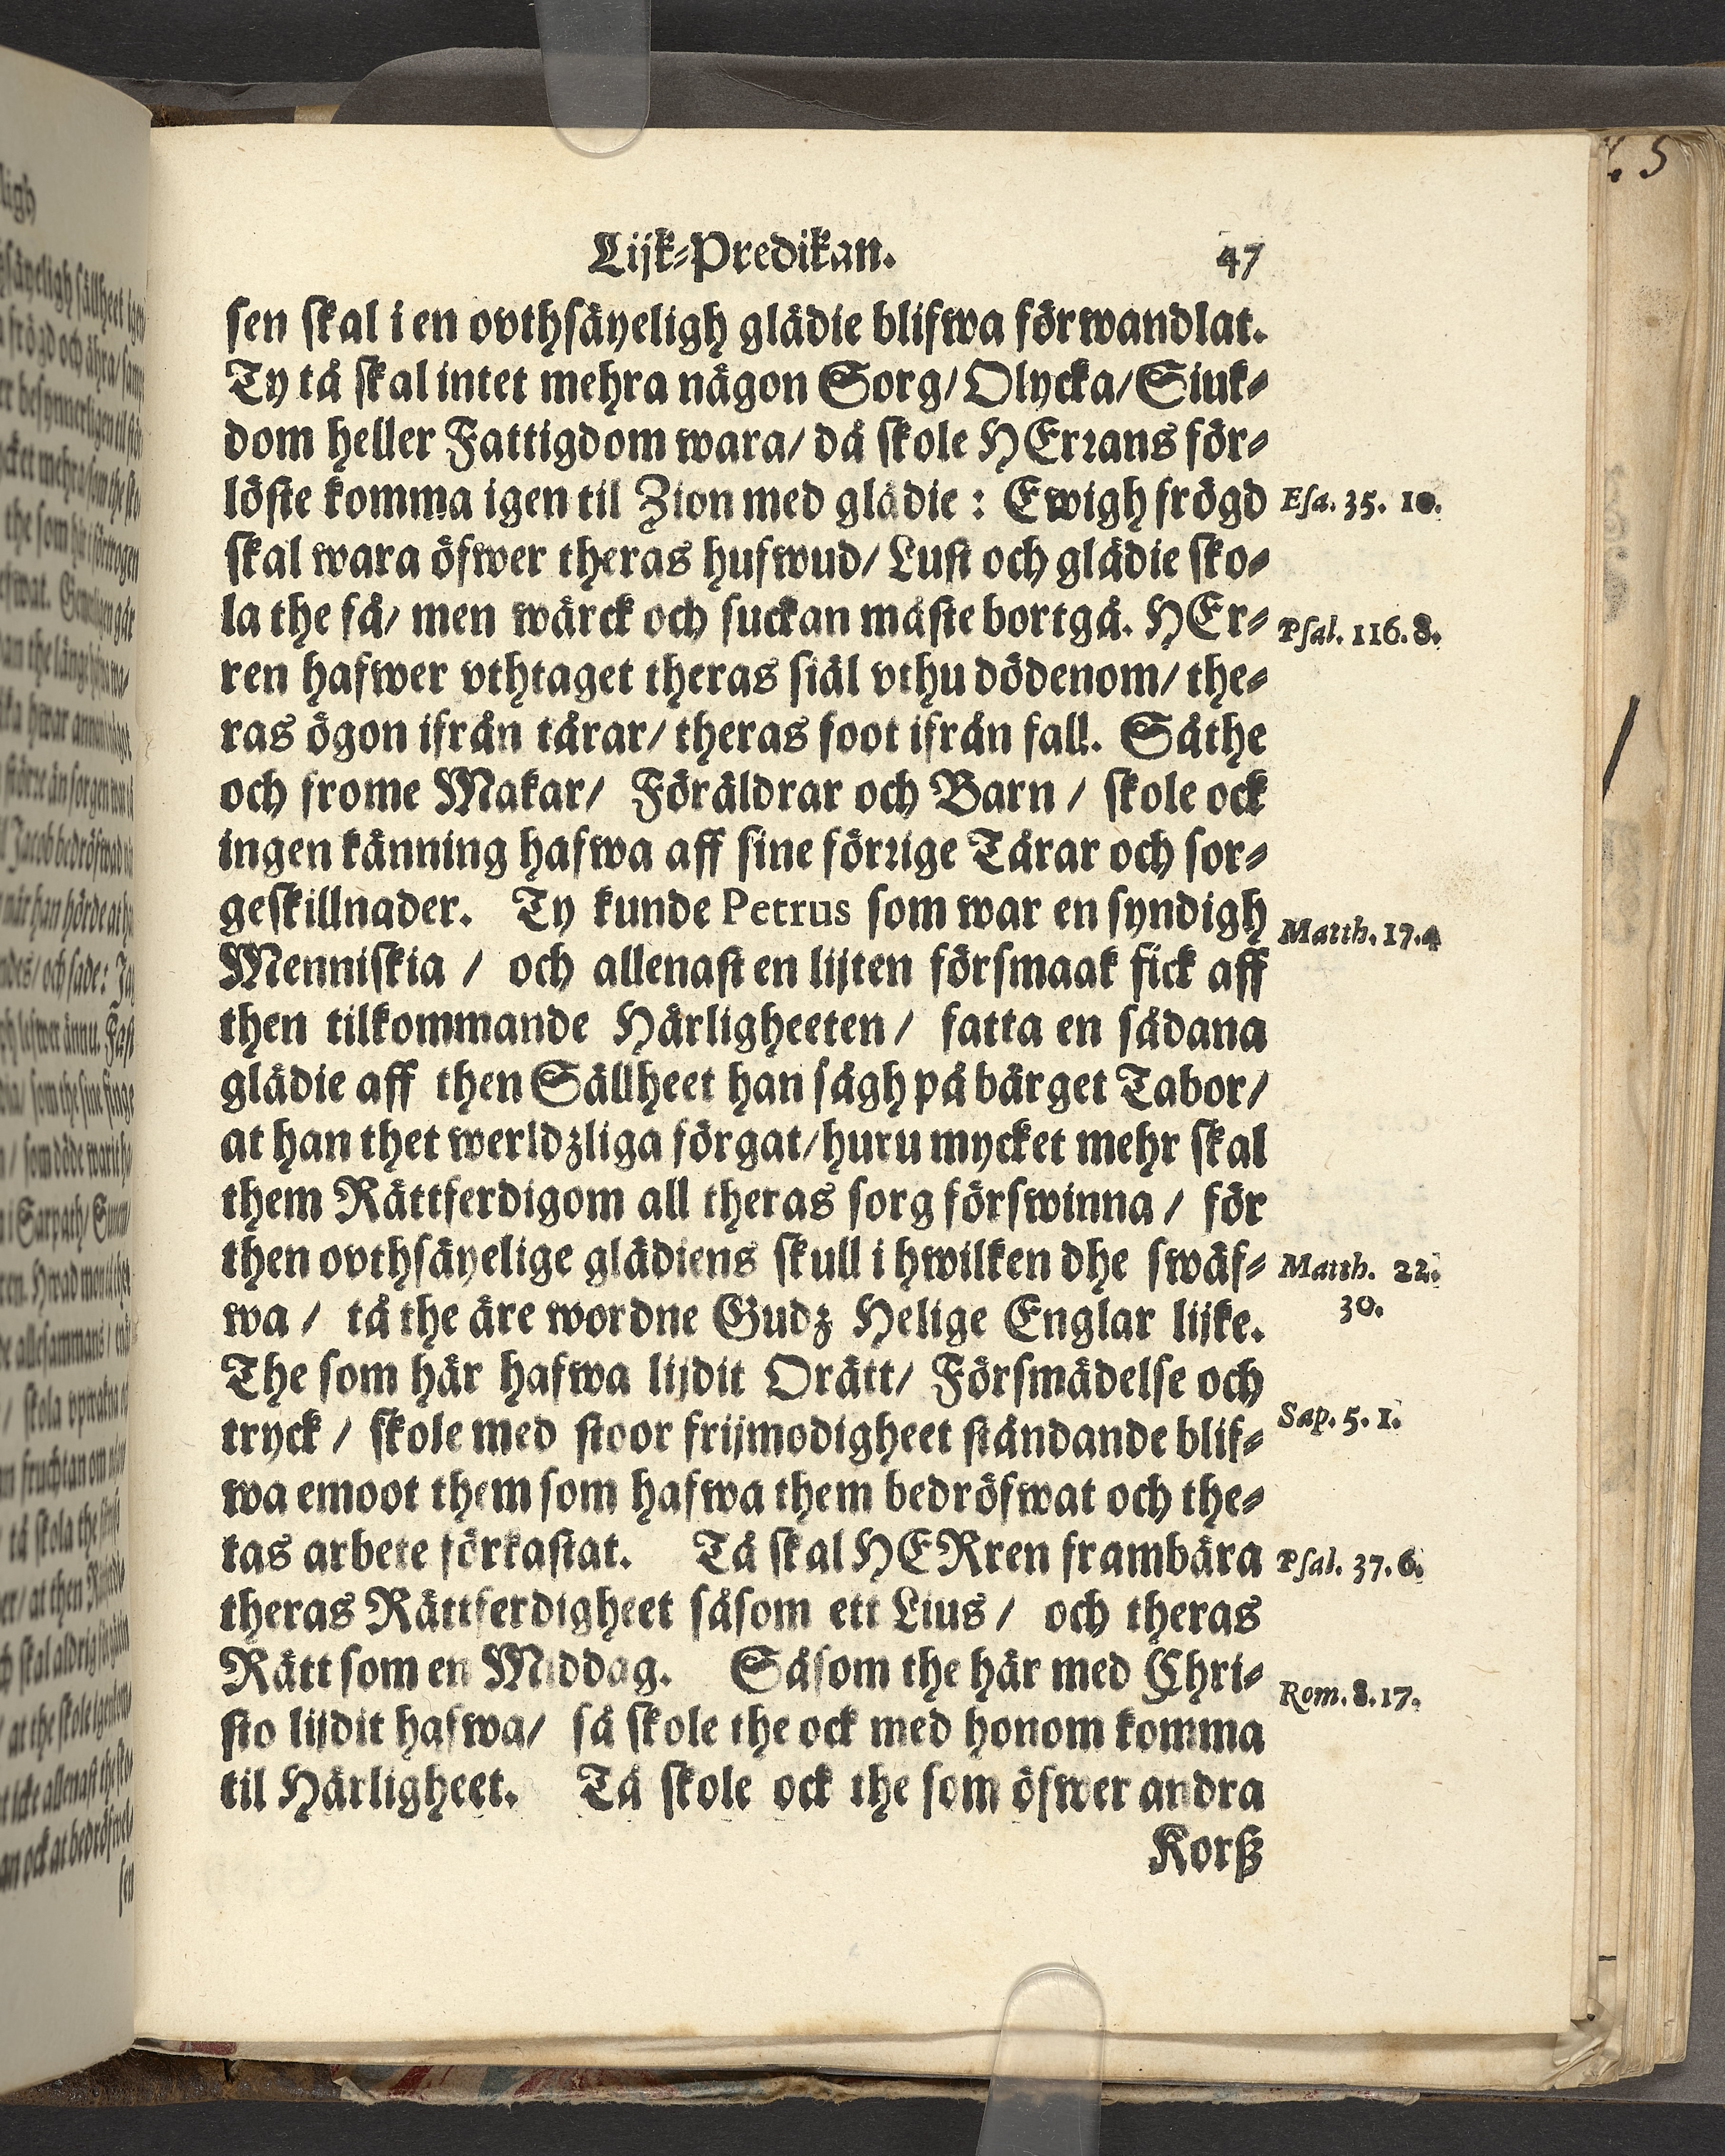 Lijk-Predikan. 47
sen skal i en ovthsäyeligh glädie blifwa förwandlat.
Ty tå skal intet mehra någon Sorg/ Olycka/ Siuk-
dom heller Fattigdom wara/ då skole HErrans för-
löste komma igen til Zion med glädie : Ewigh frögd
Esa. 35. 10.
skal wara öfwer theras hufwud/ Lust och glädie sko-
la the få/ men wärck och suckan måste bortgå. HEr-
Psal. 116. 8.
ren hafwer vthtaget theras siäl vthu dödenom/ the-
ras ögon ifrån tårar/ theras foot ifrån fall. Såthe
och frome Makar/ Föräldrar och Barn / skole ock
ingen känning hafwa aff sine förrige Tårar och sor-
geskillnader. Ty kunde Petrus som war en syndigh
Matth. 17. 4
Menniskia / och allenast en lijten försmaak fick aff
then tilkommande Härligheeten/ fatta en sådana
glädie aff then Sällheet han sågh på bärget Tabor/
at han thet werldzliga förgat/ huru mycket mehr skal
them Rättferdigom all theras sorg förswinna / för
then ovthsäyelige glädiens skull i hwilken dhe swäf-
Matth. 22.
30.
wa / tå the äre wordne Gudz Helige Englar lijke.
The som här hafwa lijdit Orätt/ Försmädelse och
tryck / skole med stoor frijmodigheet ståndande blif-
Sap. 5. 1.
wa emoot them som hafwa them bedröfwat och the-
tas arbete förkastat. Tå skal HERren frambära
Psal. 37. 6.
theras Rättferdigheet såsom ett Lius / och theras
Rätt som en Middag. Såsom the här med Chri-
Rom. 8. 17.
sto lijdit hafwa/ så skole the ock med honom komma
til Härligheet. Tå skole ock the som öfwer andra
Korß